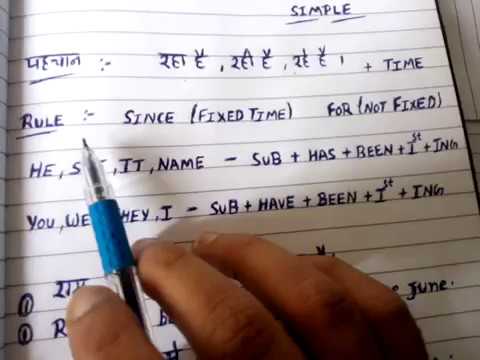 SIMPLE
पहचान :- रहा है , रही है , रहे है । + TIME
RULE :- SINCE (FIXED TIME) FOR (NOT FIXED)
HE, IT, NAME - SUB + HAS + BEEN + Ist + ING
YOU, WE, HEY, I - SUB + HAVE + BEEN + Ist + ING
①
① June.